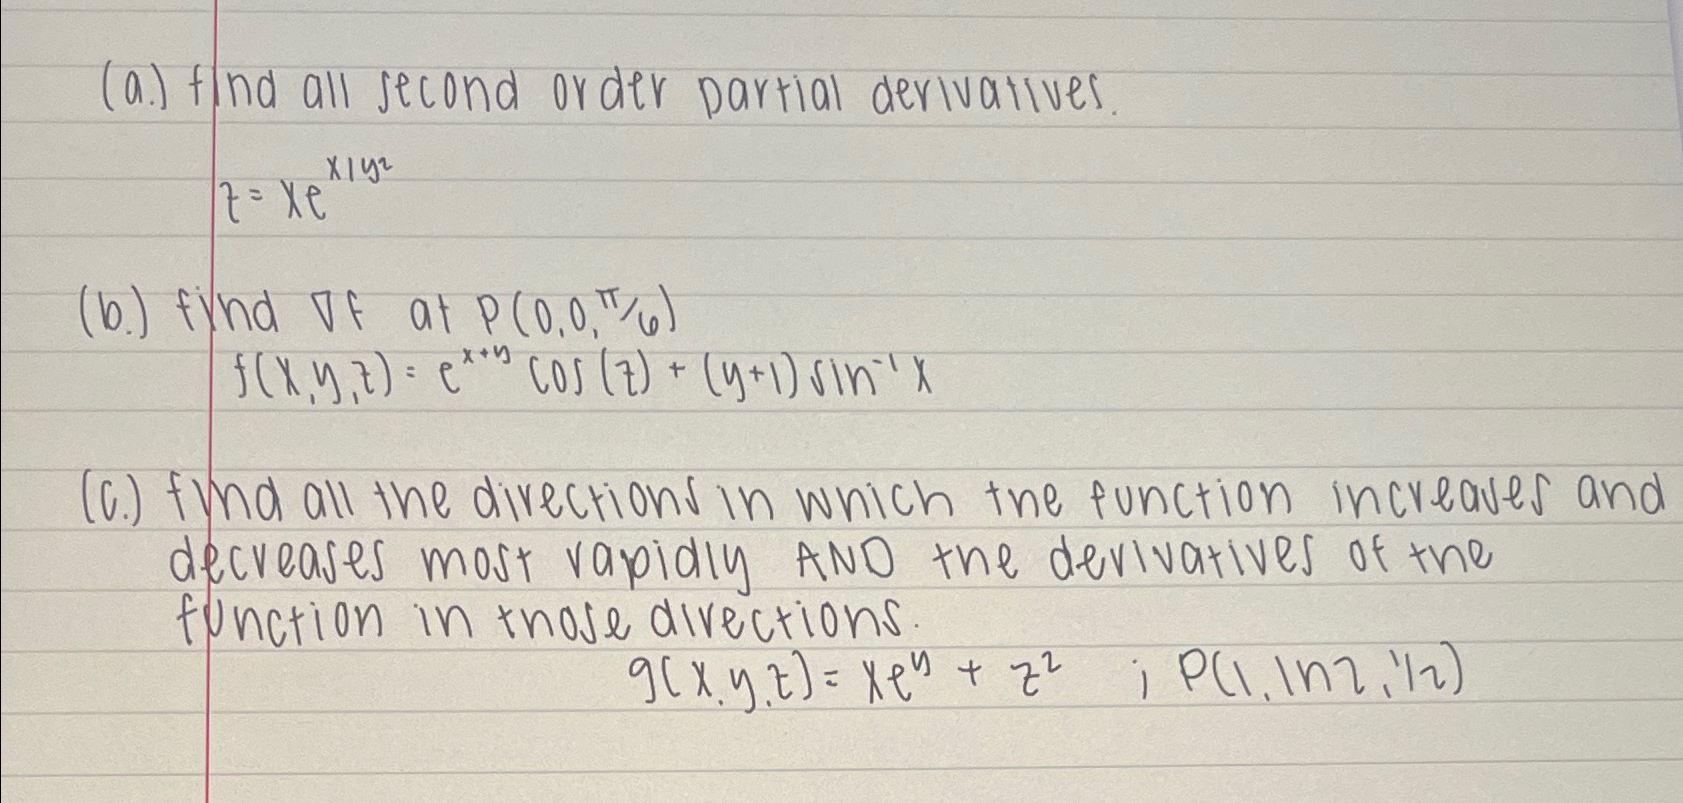 (a.) find all second order partial derivatives.
z = xe^{x/y^2}
(b.) find ∇f at P(0,0,π/6)
f(x,y,z) = e^{x+y} cos(z) + (y+1) sin^{-1} x
(c.) find all the directions in which the function increases and
decreases most rapidly AND the derivatives of the
function in those directions.
g(x,y,z) = xe^y + z^2 ; P(1, ln2, 1/2)